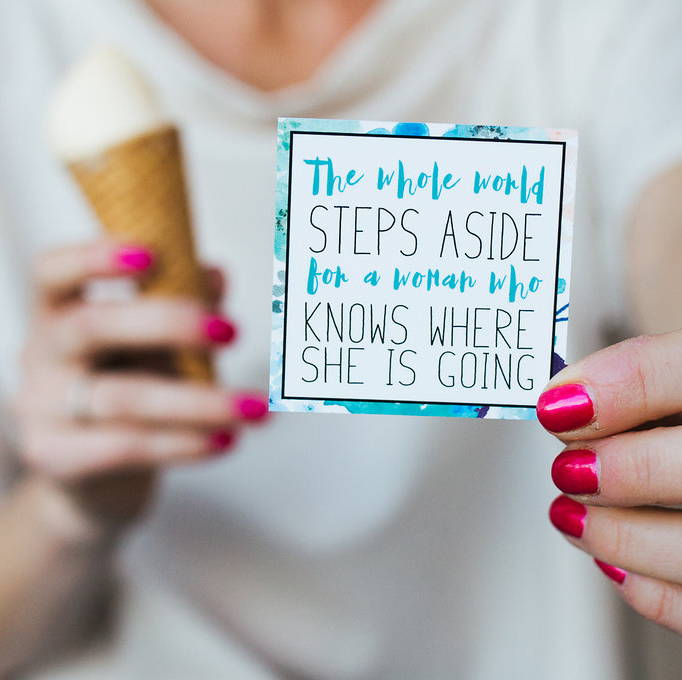 The whole world
STEPS ASIDE
for a woman who
KNOWS WHERE
SHE IS GOING